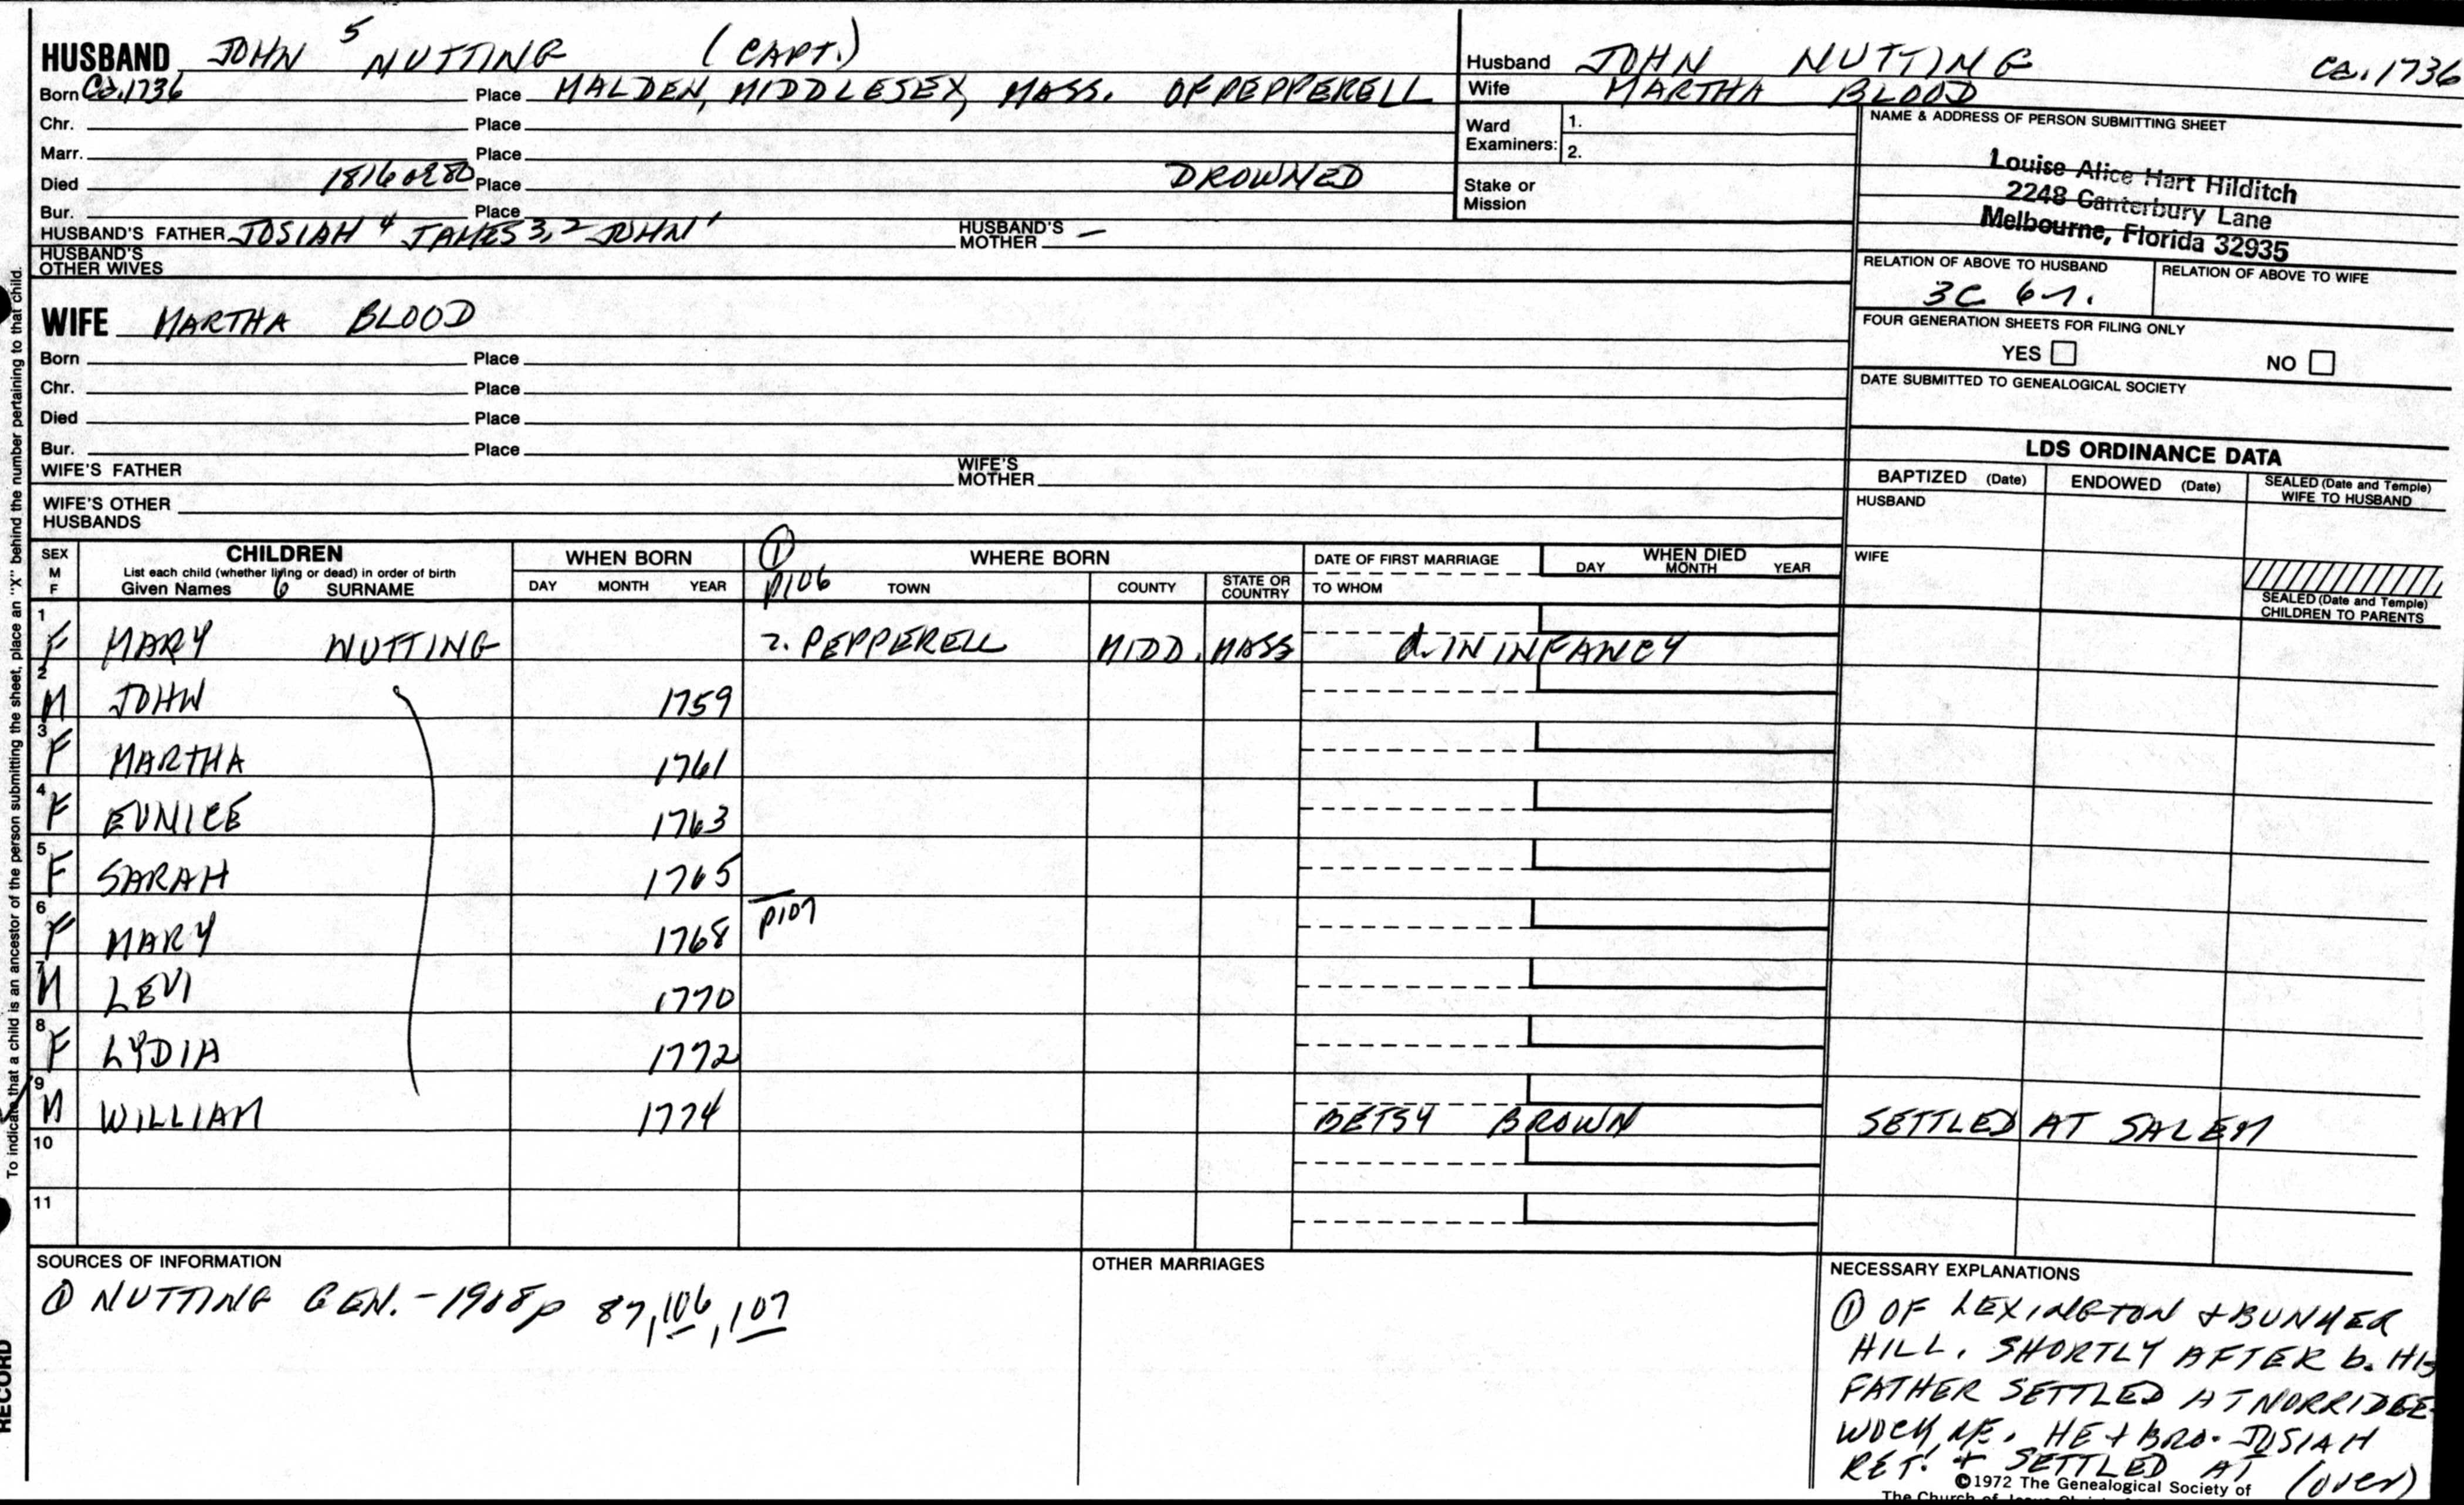 HUSBAND JOHN 5 NUTTING (CAPT.)
Born Ca.1736 Place MALDEN, MIDDLESEX, MASS. OF PEPPERELL
Chr. Place
Marr. Place
Died 1816 or 20 Place DROWNED
Bur. Place
HUSBAND'S FATHER JOSIAH 4 JAMES 3, 2 JOHN 1 HUSBAND'S MOTHER —
HUSBAND'S OTHER WIVES
Husband JOHN NUTTING Ca. 1736
Wife MARTHA BLOOD
Ward Examiners: 1.
2.
Stake or Mission
NAME & ADDRESS OF PERSON SUBMITTING SHEET
Louise Alice Hart Hilditch
2248 Canterbury Lane
Melbourne, Florida 32935
RELATION OF ABOVE TO HUSBAND RELATION OF ABOVE TO WIFE
3C 6r.
FOUR GENERATION SHEETS FOR FILING ONLY
YES NO
DATE SUBMITTED TO GENEALOGICAL SOCIETY
WIFE MARTHA BLOOD
Born Place
Chr. Place
Died Place
Bur. Place
WIFE'S FATHER WIFE'S MOTHER
WIFE'S OTHER HUSBANDS
LDS ORDINANCE DATA
BAPTIZED (Date) ENDOWED (Date) SEALED (Date and Temple) WIFE TO HUSBAND
HUSBAND
WIFE
SEALED (Date and Temple) CHILDREN TO PARENTS
SEX M F
CHILDREN
List each child (whether living or dead) in order of birth
Given Names 6 SURNAME
WHEN BORN
DAY MONTH YEAR
① p106
WHERE BORN
TOWN COUNTY STATE OR COUNTRY
DATE OF FIRST MARRIAGE
TO WHOM
WHEN DIED
DAY MONTH YEAR
1 F MARY NUTTING 2. PEPPERELL MIDD. MASS d. IN INFANCY
2 M JOHN 1759
3 F MARTHA 1761
4 F EUNICE 1763
5 F SARAH 1765
6 F MARY 1768 p107
7 M LEVI 1770
8 F LYDIA 1772
9 M WILLIAM 1774 BETSY BROWN SETTLED AT SALEM
10
11
SOURCES OF INFORMATION
① NUTTING GEN. - 1908 p 87, 106, 107
OTHER MARRIAGES
NECESSARY EXPLANATIONS
① OF LEXINGTON + BUNKER
HILL. SHORTLY AFTER b. HIS
FATHER SETTLED AT NORRIDGE-
WOCK, ME. HE + BRO. JOSIAH
RET. + SETTLED AT (over)
©1972 The Genealogical Society of
To indicate that a child is an ancestor of the person submitting the sheet, place an "X" behind the number pertaining to that child.
RECORD